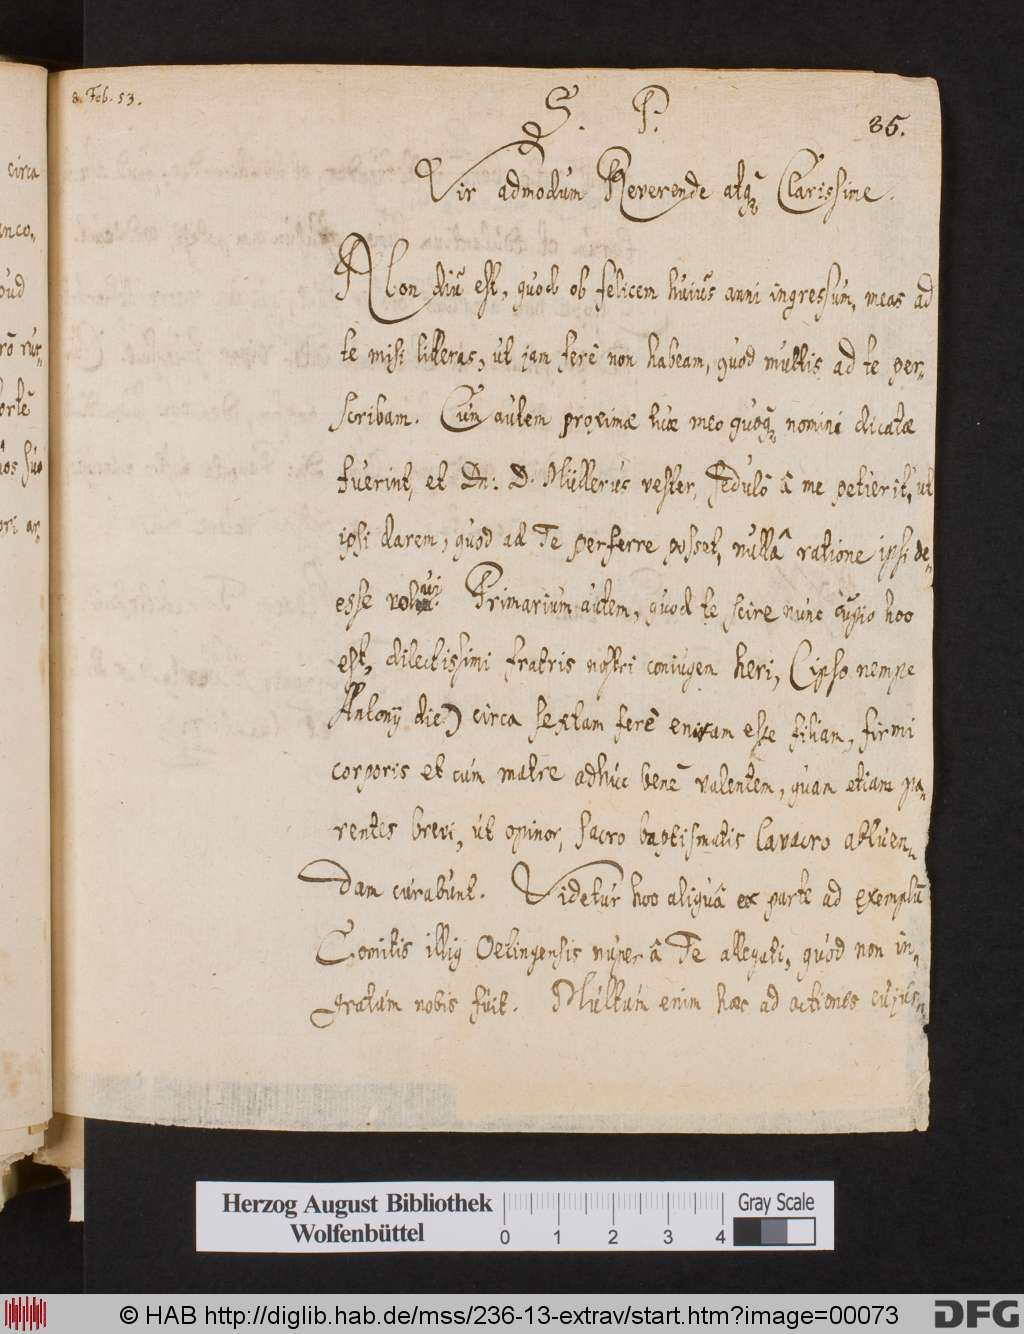 8. Feb. 53.
S. P.
35.
Vir admodum Reverende atq₃ Clarissime.
Non diu est, quod ob felicem huius anni ingressum, meas ad
te misi litteras, ut jam ferè non habeam, quod multis ad te per-
scribam. Cum autem proximæ tuæ meo quoq₃ nomini dicatæ
fuerint, et Dn: D. Müllerus vester, sedulò â me petierit, ut
ipsi darem, quod ad Te perferre posset, nullâ ratione ipsi de-
esse volui. Primarium autem, quod te scire nunc cupio hoc
est, dilectissimi fratris nostri coniugem heri, (ipso nempe
Antonij die) circa sextam ferè enixam esse filiam, firmi
corporis et cum matre adhuc benè valentem, quam etiam pa-
rentes brevi, ut opinor, sacro baptismatis lavacro abluen-
dam curabunt. Videtur hoc aliquâ ex parte ad exemplū
Comitis illig Oetingensis nuper â Te allegati, quod non in-
gratum nobis fuit. Multum enim hæc ad actiones cujus-
circa
anco-
oud
rō rur-
ortē
os suo
ori ar-
Herzog August Bibliothek
Wolfenbüttel
0 1 2 3 4
Gray Scale
© HAB http://diglib.hab.de/mss/236-13-extrav/start.htm?image=00073
DFG